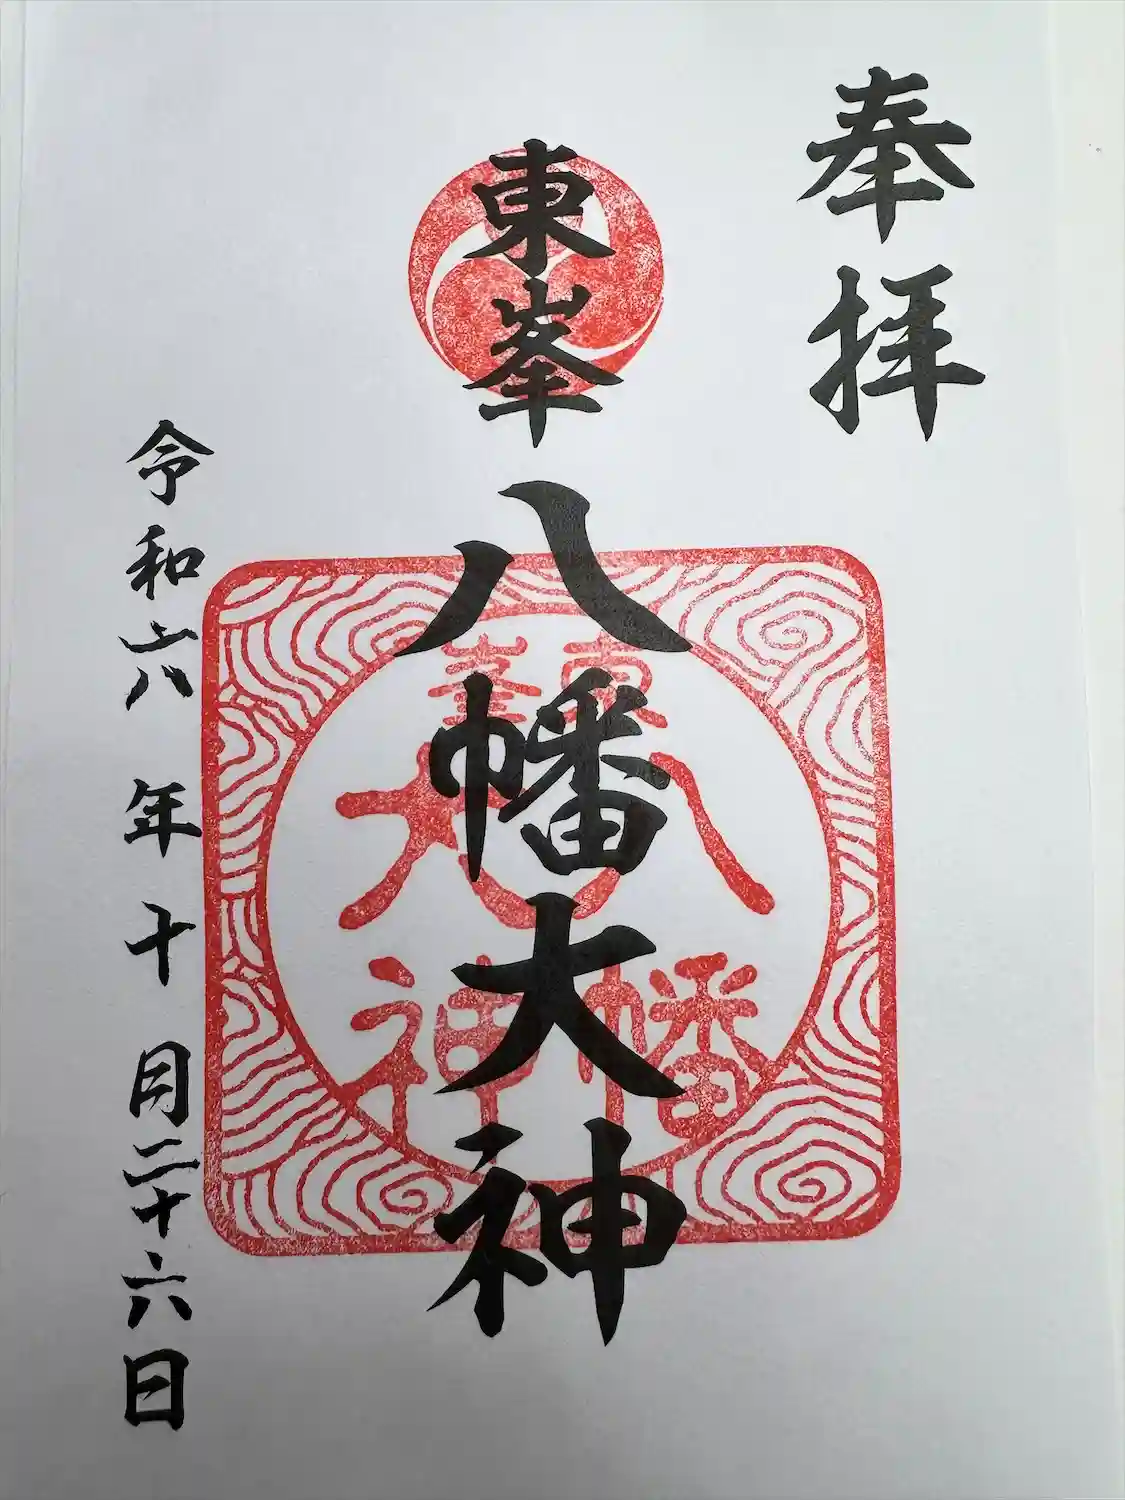 奉拝
東峯
八幡大神
東峯
八幡
大神
令和六年十月二十六日